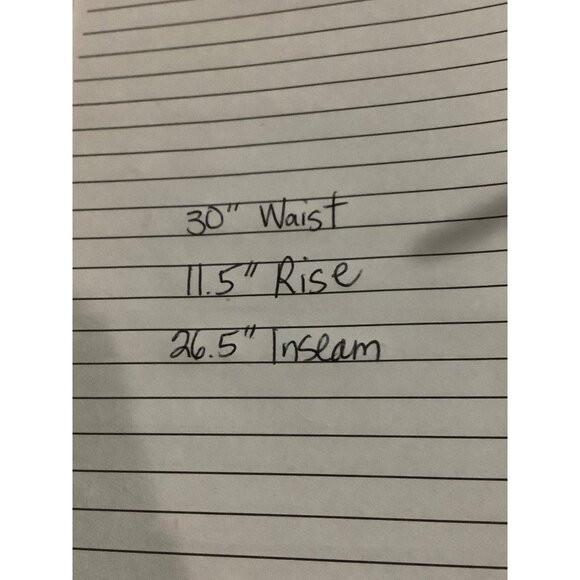 30" Waist
11.5" Rise
26.5" Inseam